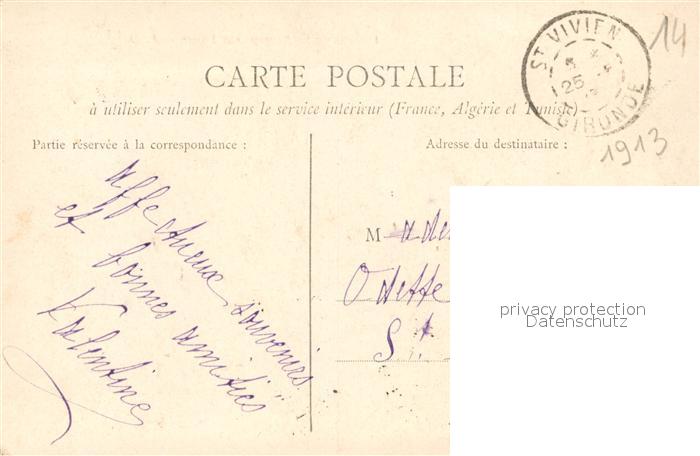 ST VIVIEN
25
GIRONDE
14
1913
CARTE POSTALE
à utiliser seulement dans le service intérieur (France, Algérie et Tunisie)
Partie réservée à la correspondance :
Adresse du destinataire :
affectueux souvenirs
et bonnes amitiés
Valentine
M ade
Odette
St
privacy protection
Datenschutz